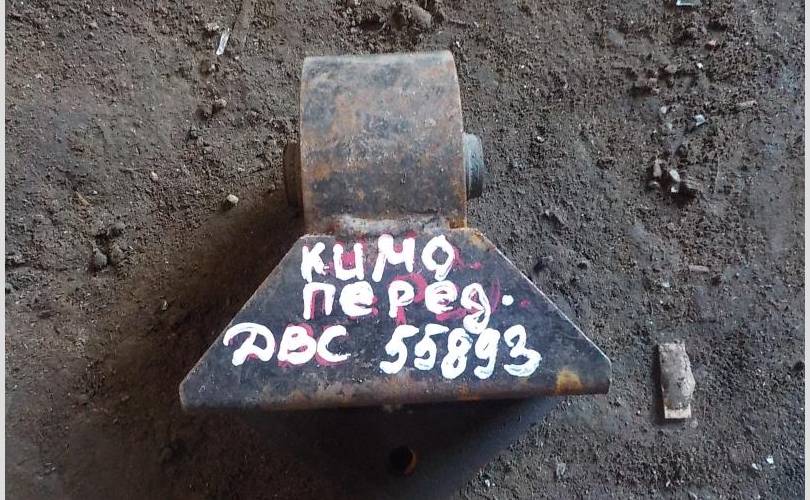 кимо
перед.
ДВС 55893